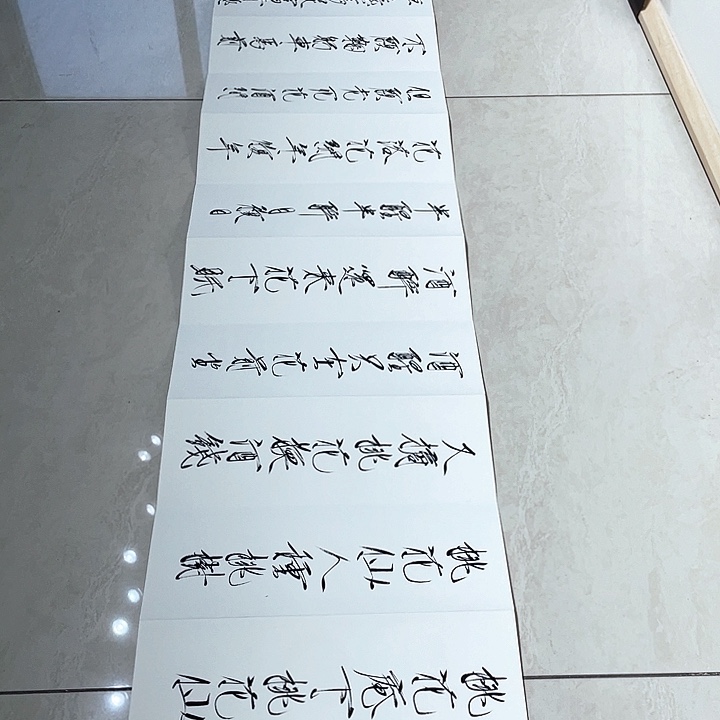 桃花庵下桃花仙
桃花仙人種桃樹
又摘桃花換酒錢
酒醒只在花前坐
酒醉還來花下眠
半醒半醉日復日
花落花開年復年
但願老死花酒間
不願鞠躬車馬前